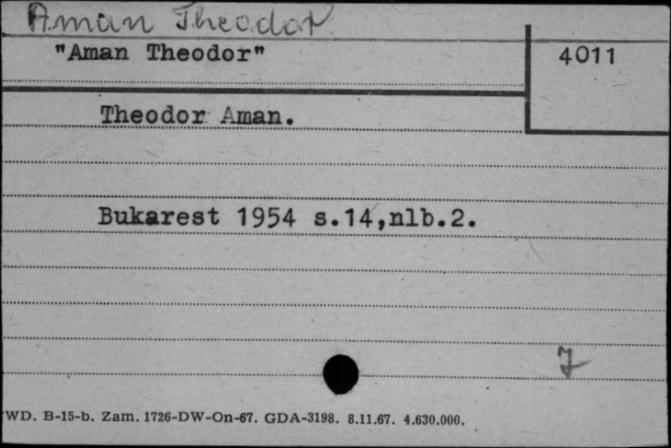 Aman Theodor
"Aman Theodor"
4011
Theodor Aman.
Bukarest 1954 s.14,nlb.2.
WD. B-15-b. Zam. 1726-DW-On-67. GDA-3198. 8.11.67. 4.630.000.